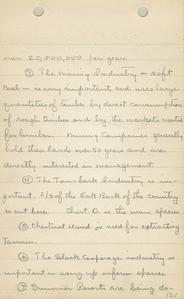 over 20,000,000 per year.
③ The Mining Industry - soft
coal - is very important and uses large
quantities of timber by direct consumption
of rough timber and by the markets created
for lumber. Mining Companies generally
hold these lands over 50 years and are
directly interested in management.
④ The Tan bark Industry is im-
portant. 2/3 of the Oak Bark of the country
is cut here. Chart. O. is the main species
⑤ Chestnut Wood is used for extracting
Tannin.
⑥ The Slack Cooperage industry is
important in using up inferior species.
⑦ Summer Resorts are being de-